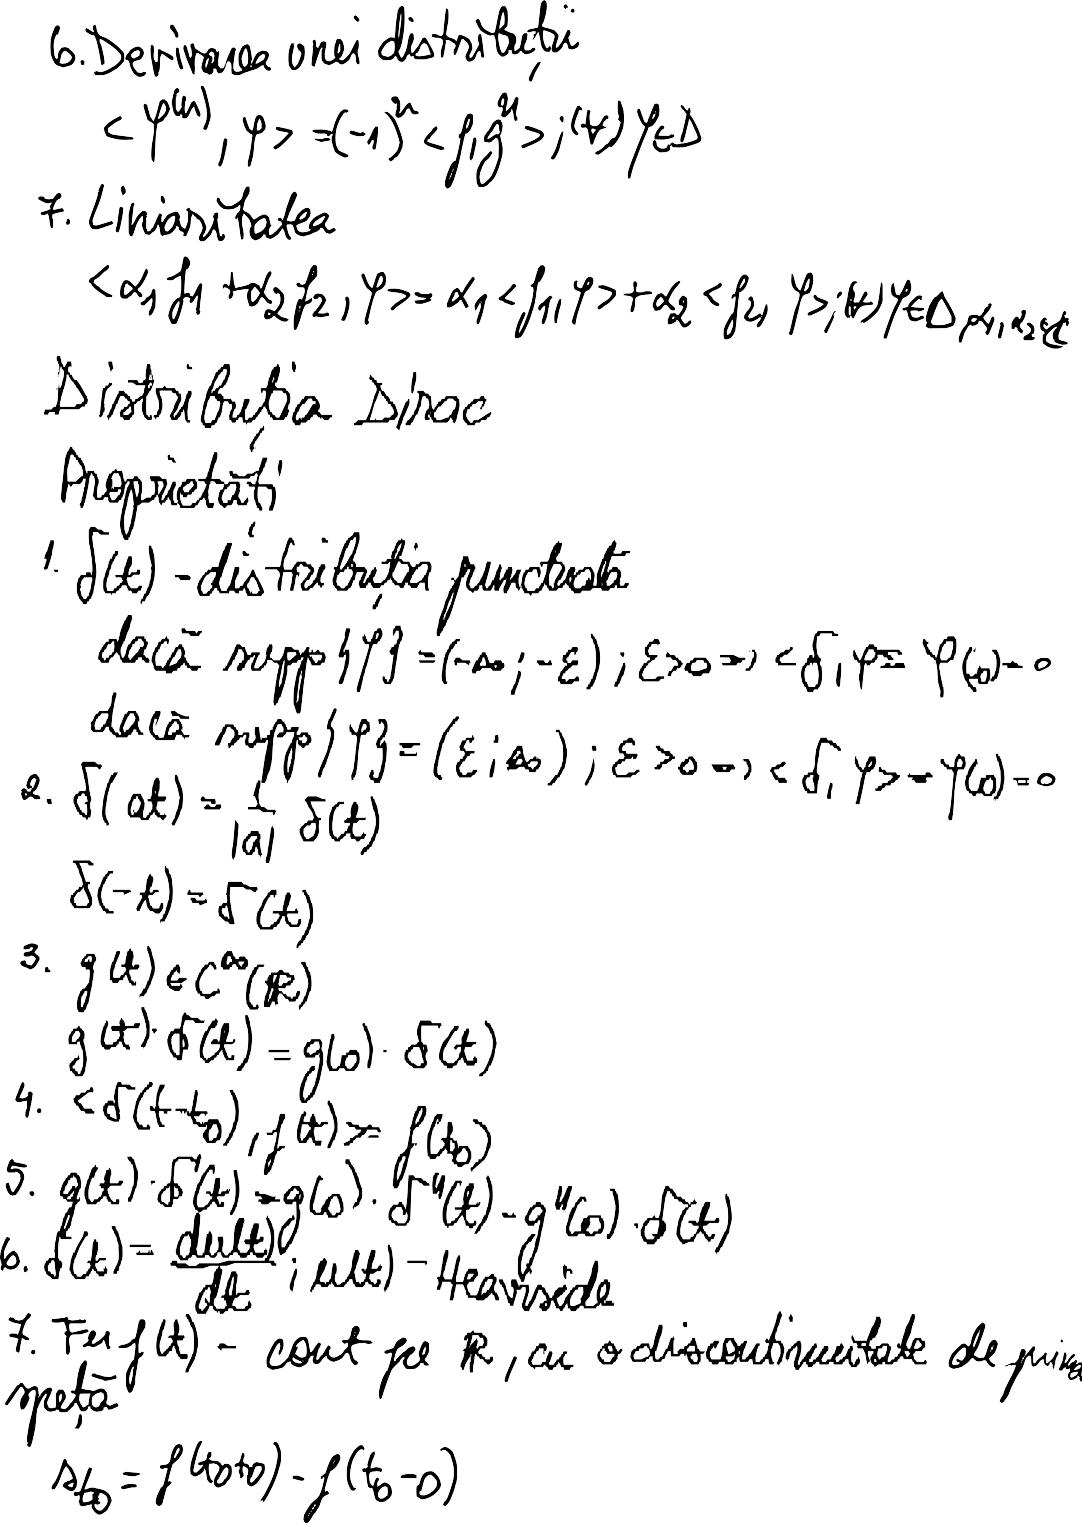 6. Derivarea unei distribuții
< φ⁽ⁿ⁾, φ > = (-1)ⁿ < f, gⁿ > ; (∀) φ ∈ D
7. Liniaritatea
< α₁ f₁ + α₂ f₂, φ > = α₁ < f₁, φ > + α₂ < f₂, φ > ; (∀) φ ∈ D, α₁, α₂ ∈ C
Distribuția Dirac
Proprietăți
1. δ(t) - distribuția punctuală
dacă supp {φ} = (-∞ ; -ε) ; ε > 0 => < δ, φ = φ(0) = 0
dacă supp {φ} = (ε ; ∞) ; ε > 0 => < δ, φ > = φ(0) = 0
2. δ(at) = 1/|a| δ(t)
δ(-t) = δ(t)
3. g(t) ∈ C^∞(ℝ)
g(t) · δ(t) = g(0) · δ(t)
4. < δ(t-t₀), f(t) > = f(t₀)
5. g(t) · δ'(t) = g(0) · δ''(t) - g''(0) · δ(t)
6. δ(t) = du(t)/dt ; u(t) - Heaviside
7. Fie f(t) - cont pe ℝ, cu o discontinuitate de prima
speță
s_t₀ = f(t₀+0) - f(t₀-0)